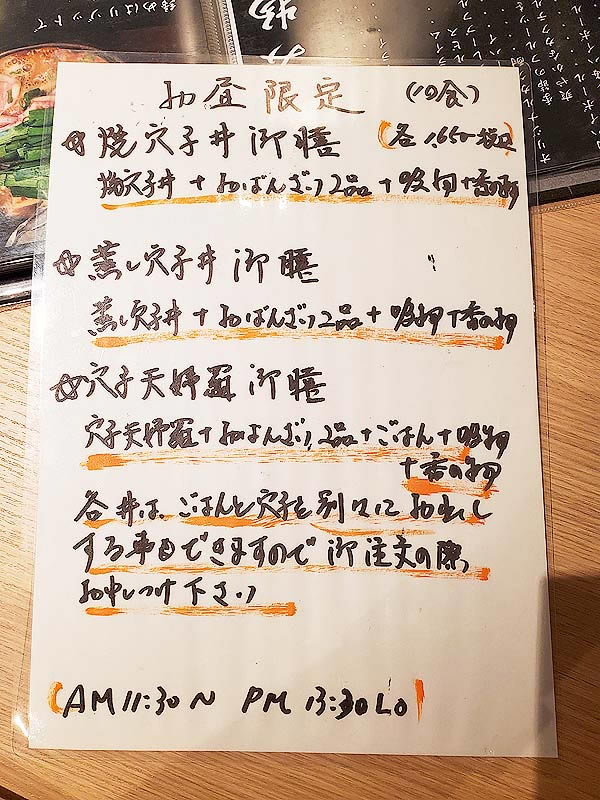 鍋めはリットで
お昼限定 (10食)
☆焼穴子丼御膳 (各1,650-税込)
焼穴子丼+おばんざい2品+吸物+香の物
☆蒸し穴子丼御膳
蒸し穴子丼+おばんざい2品+吸物+香の物
☆穴子天婦羅御膳
穴子天婦羅+おばんざい2品+ごはん+吸物
+香の物
各丼は、ごはんと穴子を別々にお出し
する事もできますので御注文の際、
お申しつけ下さい
(AM11:30~ PM13:30LO)